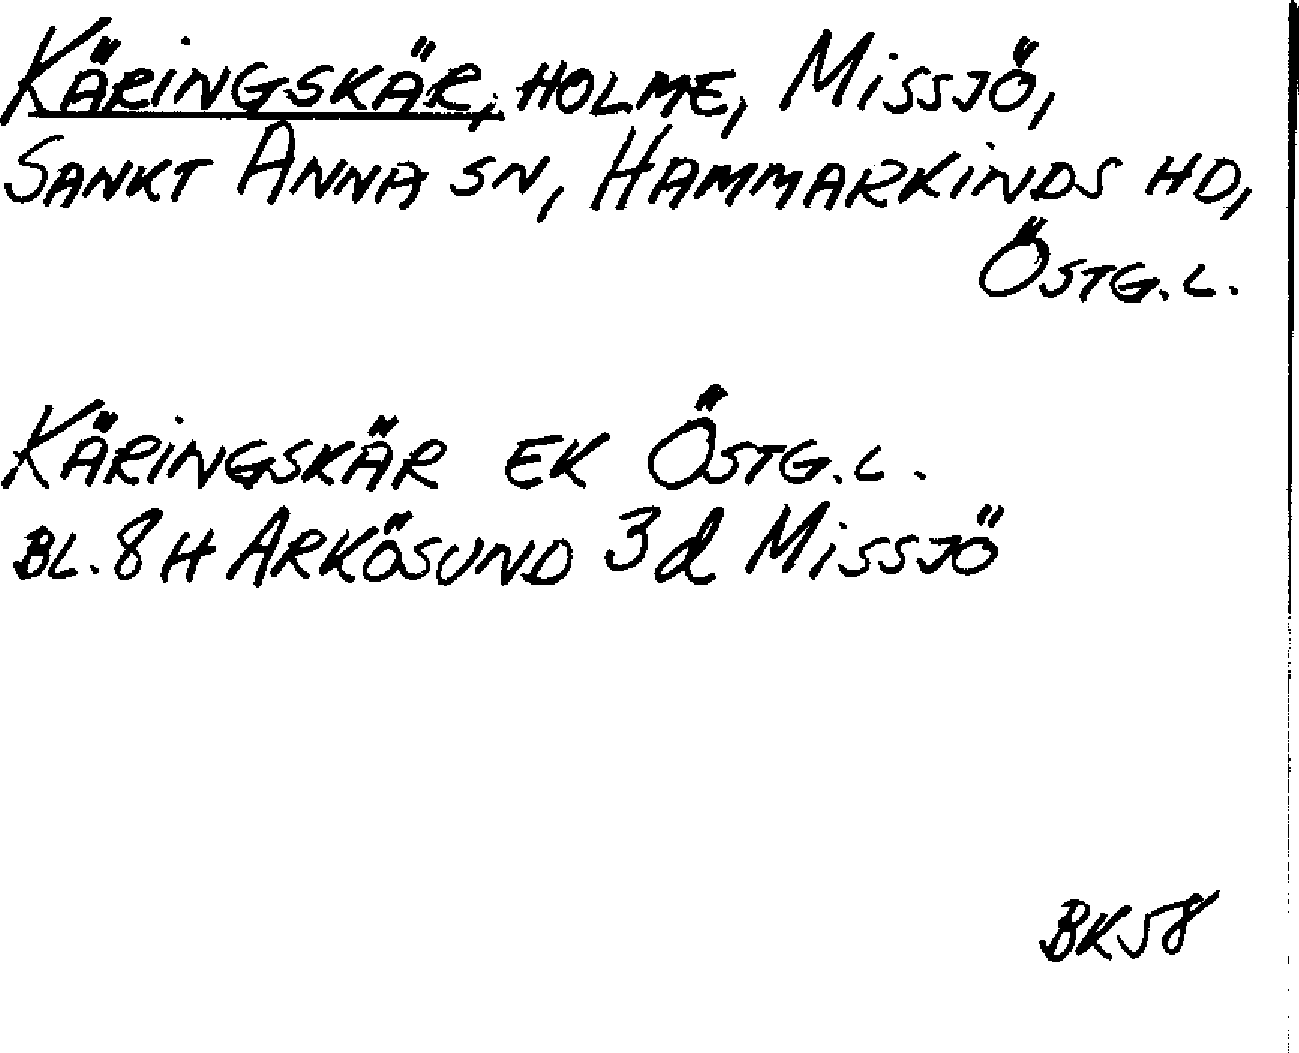 KÄRINGSKÄR, HOLME, MISSJÖ,
SANKT ANNA SN, HAMMARKINDS HD,
ÖSTG.L.
KÄRINGSKÄR EK ÖSTG.L.
BL. 8H ARKÖSUND 3d MISSJÖ
BK58